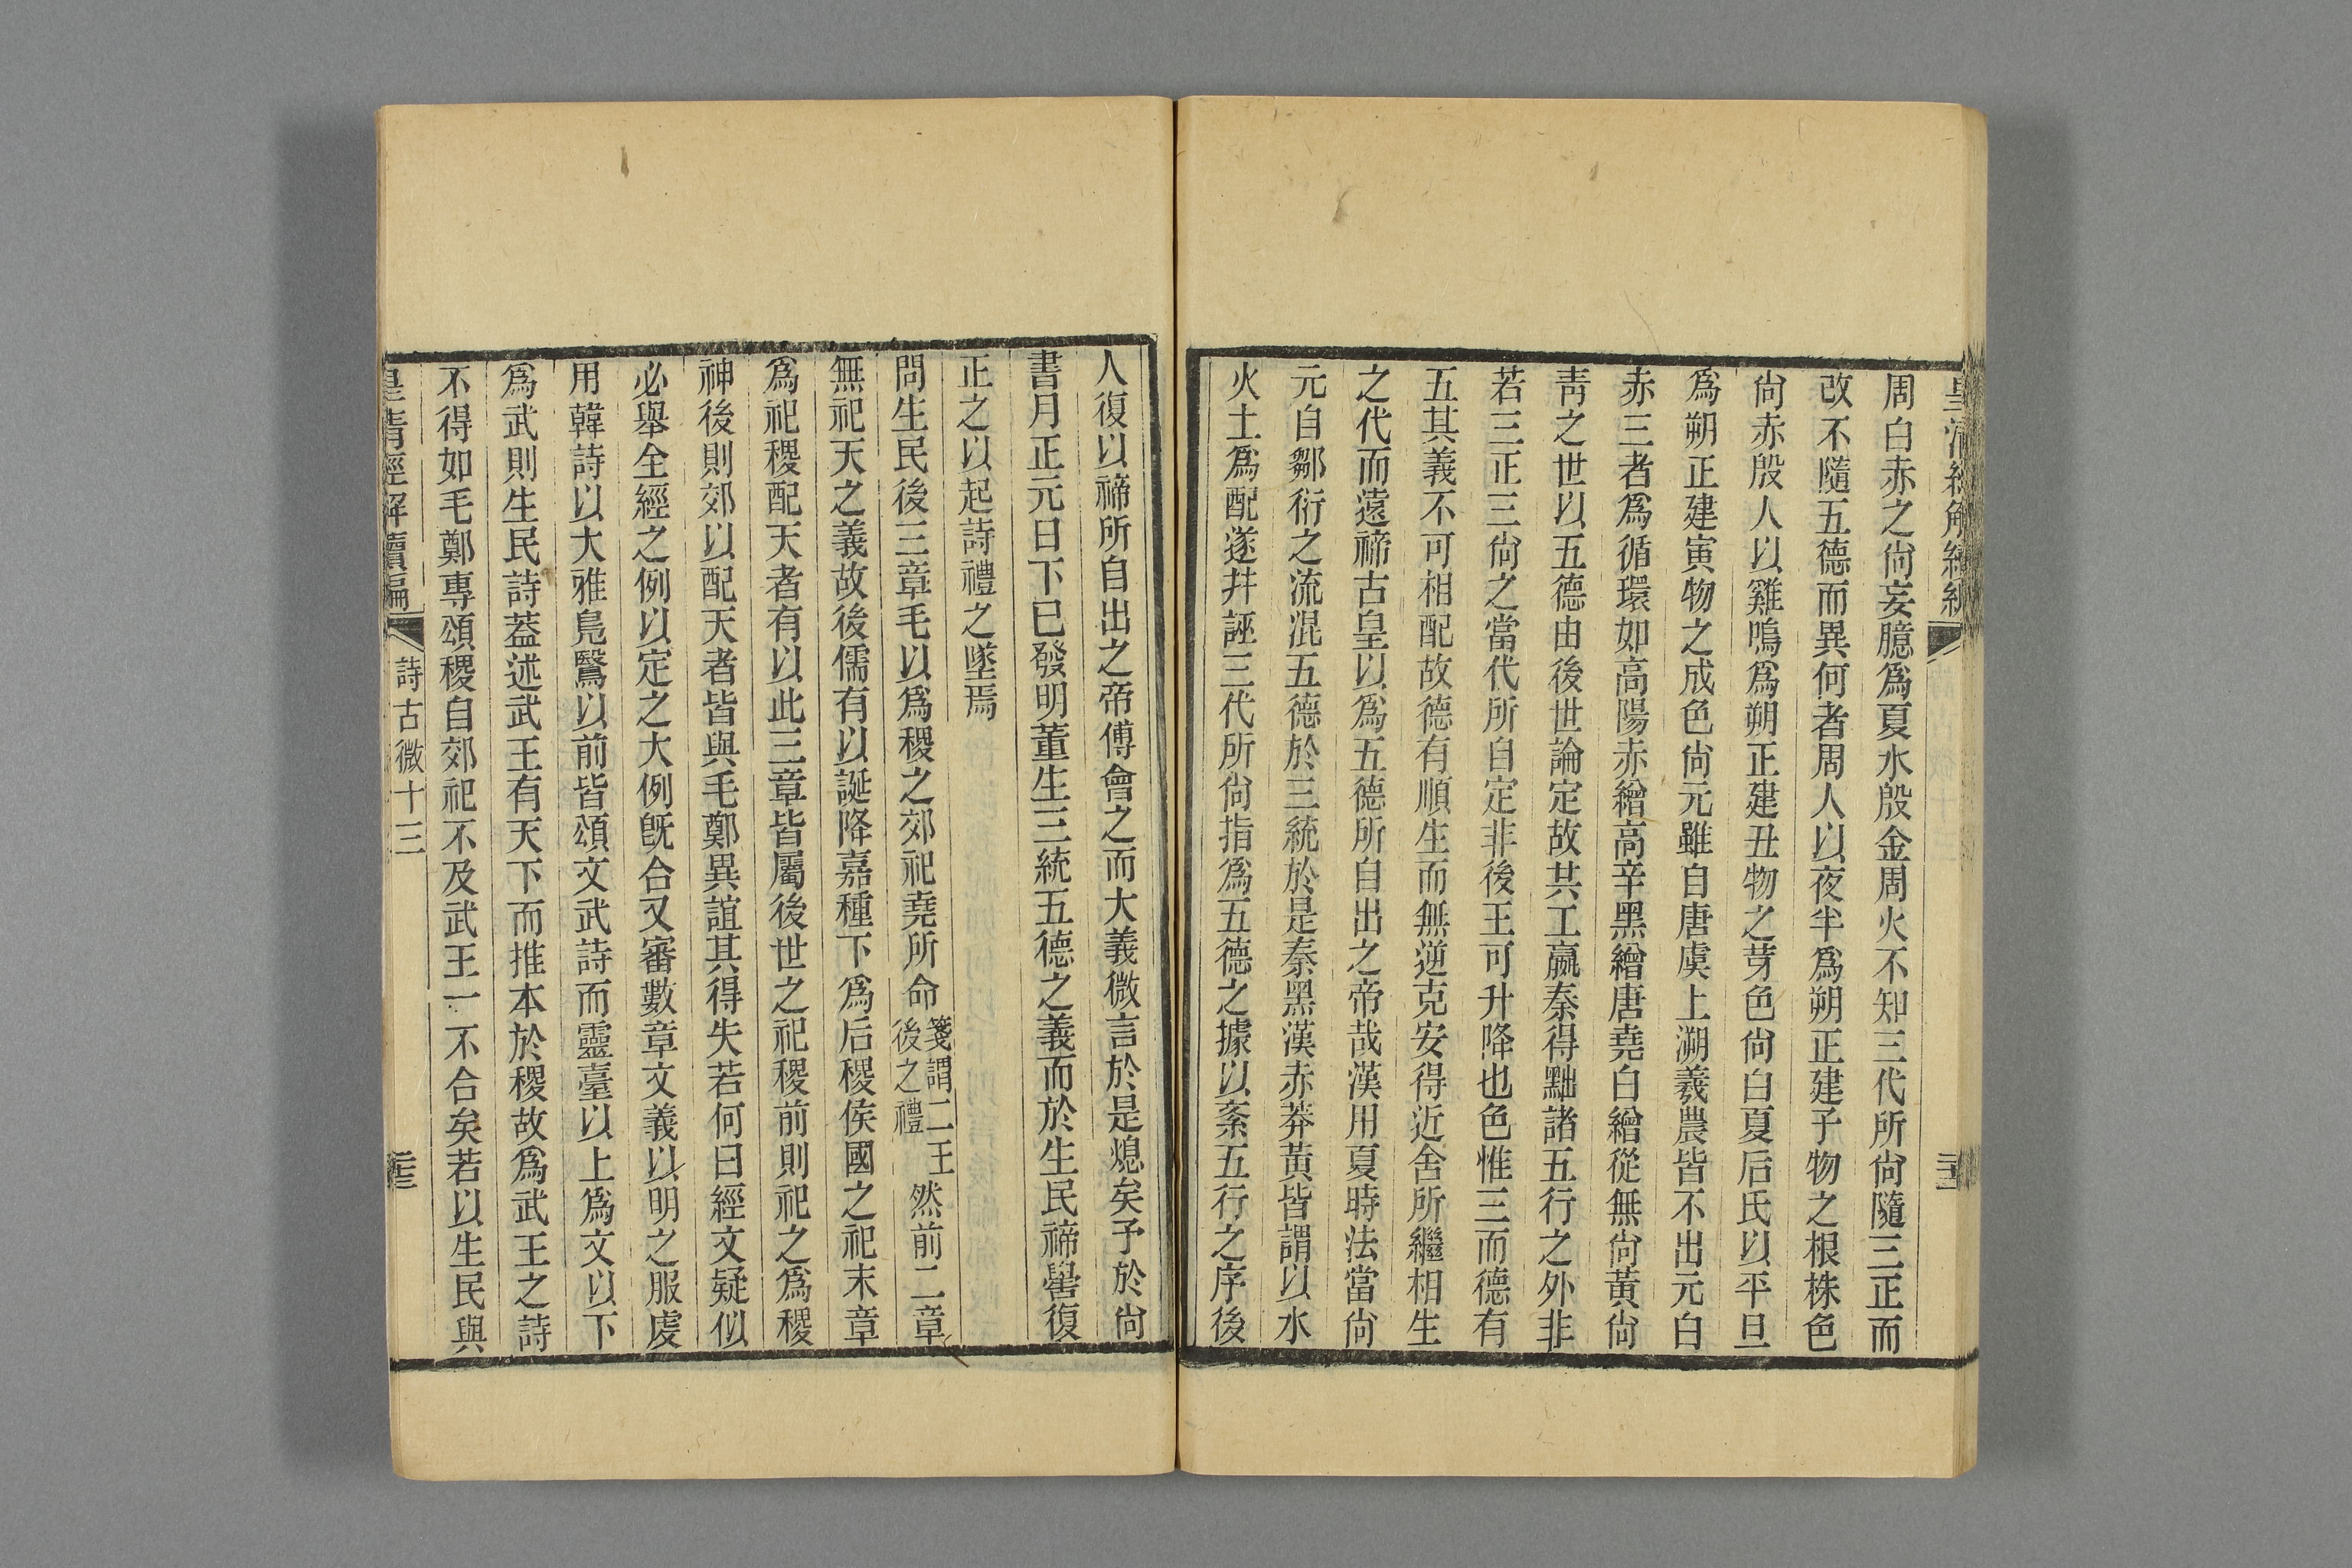 周白赤之尙妄臆爲夏水殷金周火不知三代所尙隨三正而
改不隨五德而異何者周人以夜半爲朔正建子物之根株色
尙赤殷人以雞鳴爲朔正建丑物之芽色尙白夏后氏以平旦
爲朔正建寅物之成色尙元雖自唐虞上溯羲農皆不出元白
赤三者爲循環如高陽赤繒高辛黑繒唐堯白繒從無尙黃尙
靑之世以五德由後世論定故共工嬴秦得黜諸五行之外非
若三正三尙之當代所自定非後王可升降也色惟三而德有
五其義不可相配故德有順生而無逆克安得近舍所繼相生
之代而遠禘古皇以爲五德所自出之帝哉漢用夏時法當尙
元自鄒衍之流混五德於三統於是秦黑漢赤莽黃皆謂以水
火土爲配遂幷誣三代所尙指爲五德之據以紊五行之序後
人復以禘所自出之帝傅會之而大義微言於是熄矣予於尙
書月正元日下已發明董生三統五德之義而於生民禘嚳復
正之以起詩禮之墜焉
問生民後三章毛以爲稷之郊祀堯所命箋謂二王後之禮然前二章
無祀天之義故後儒有以誕降嘉種下爲后稷侯國之祀末章
爲祀稷配天者有以此三章皆屬後世之祀稷前則祀之爲稷
神後則郊以配天者皆與毛鄭異誼其得失若何曰經文疑似
必舉全經之例以定之大例旣合又審數章文義以明之服虔
用韓詩以大雅鳧鷖以前皆頌文武詩而靈臺以上爲文以下
爲武則生民詩葢述武王有天下而推本於稷故爲武王之詩
不得如毛鄭專頌稷自郊祀不及武王一不合矣若以生民與
皇清經解續編
詩古微十三